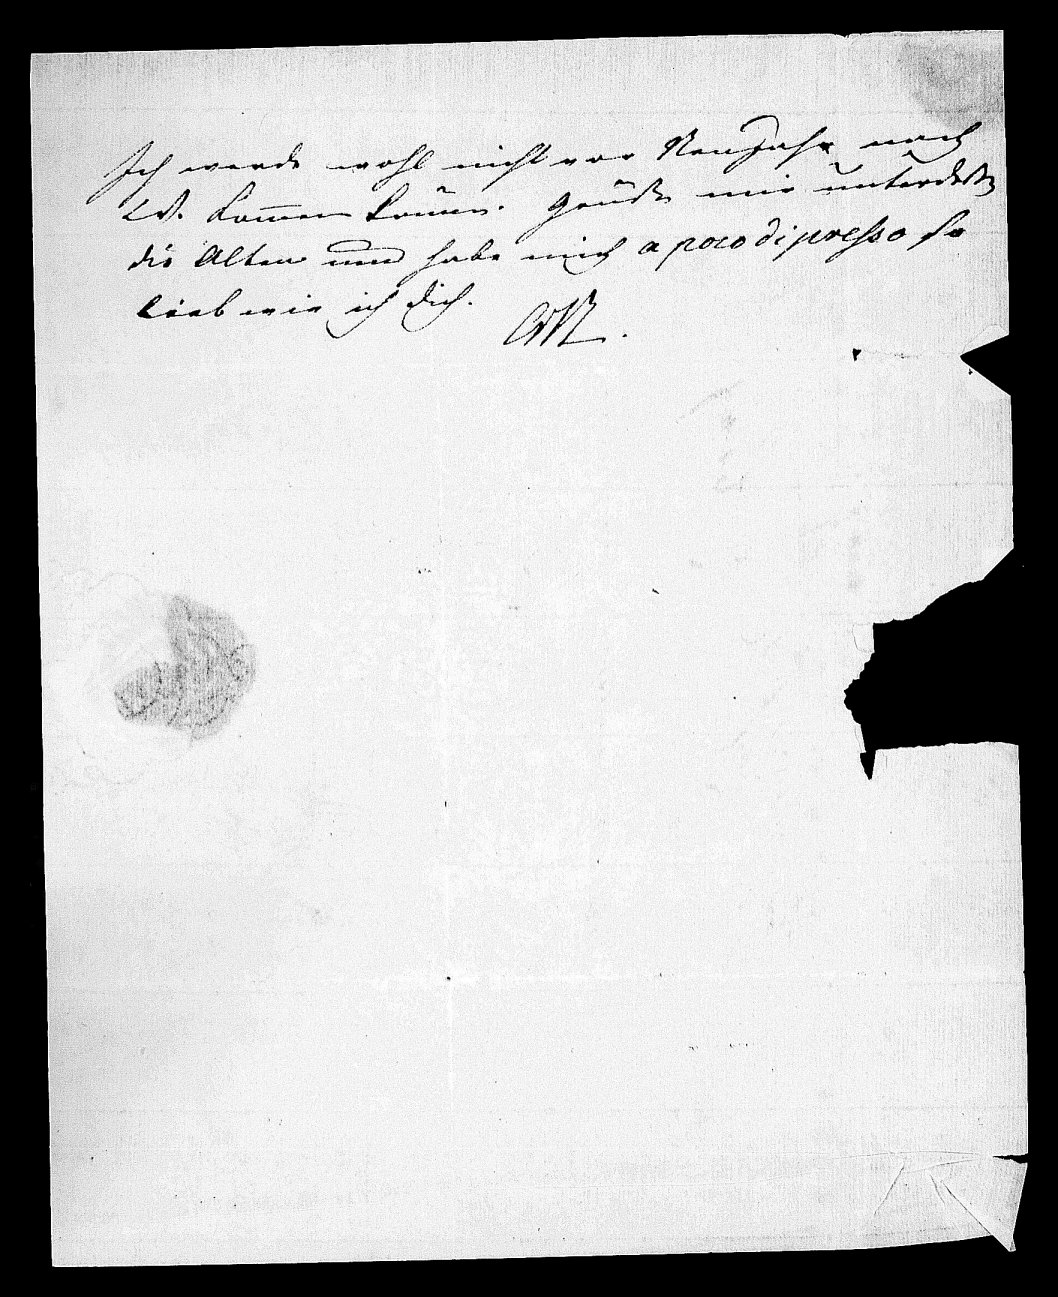 Ich werde wohl nicht vor Neujahr nach
W. kommen können. Grüße mir unterdeßen
die Alten und habe mich a poco di presso so
lieb wie ich dich.